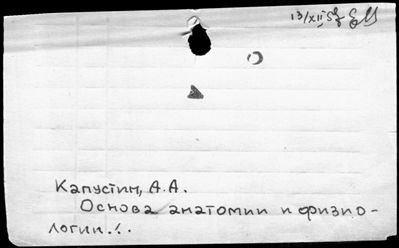 13/XII 57
Капустин, А.А.
Основа анатомии и физио-
логии...